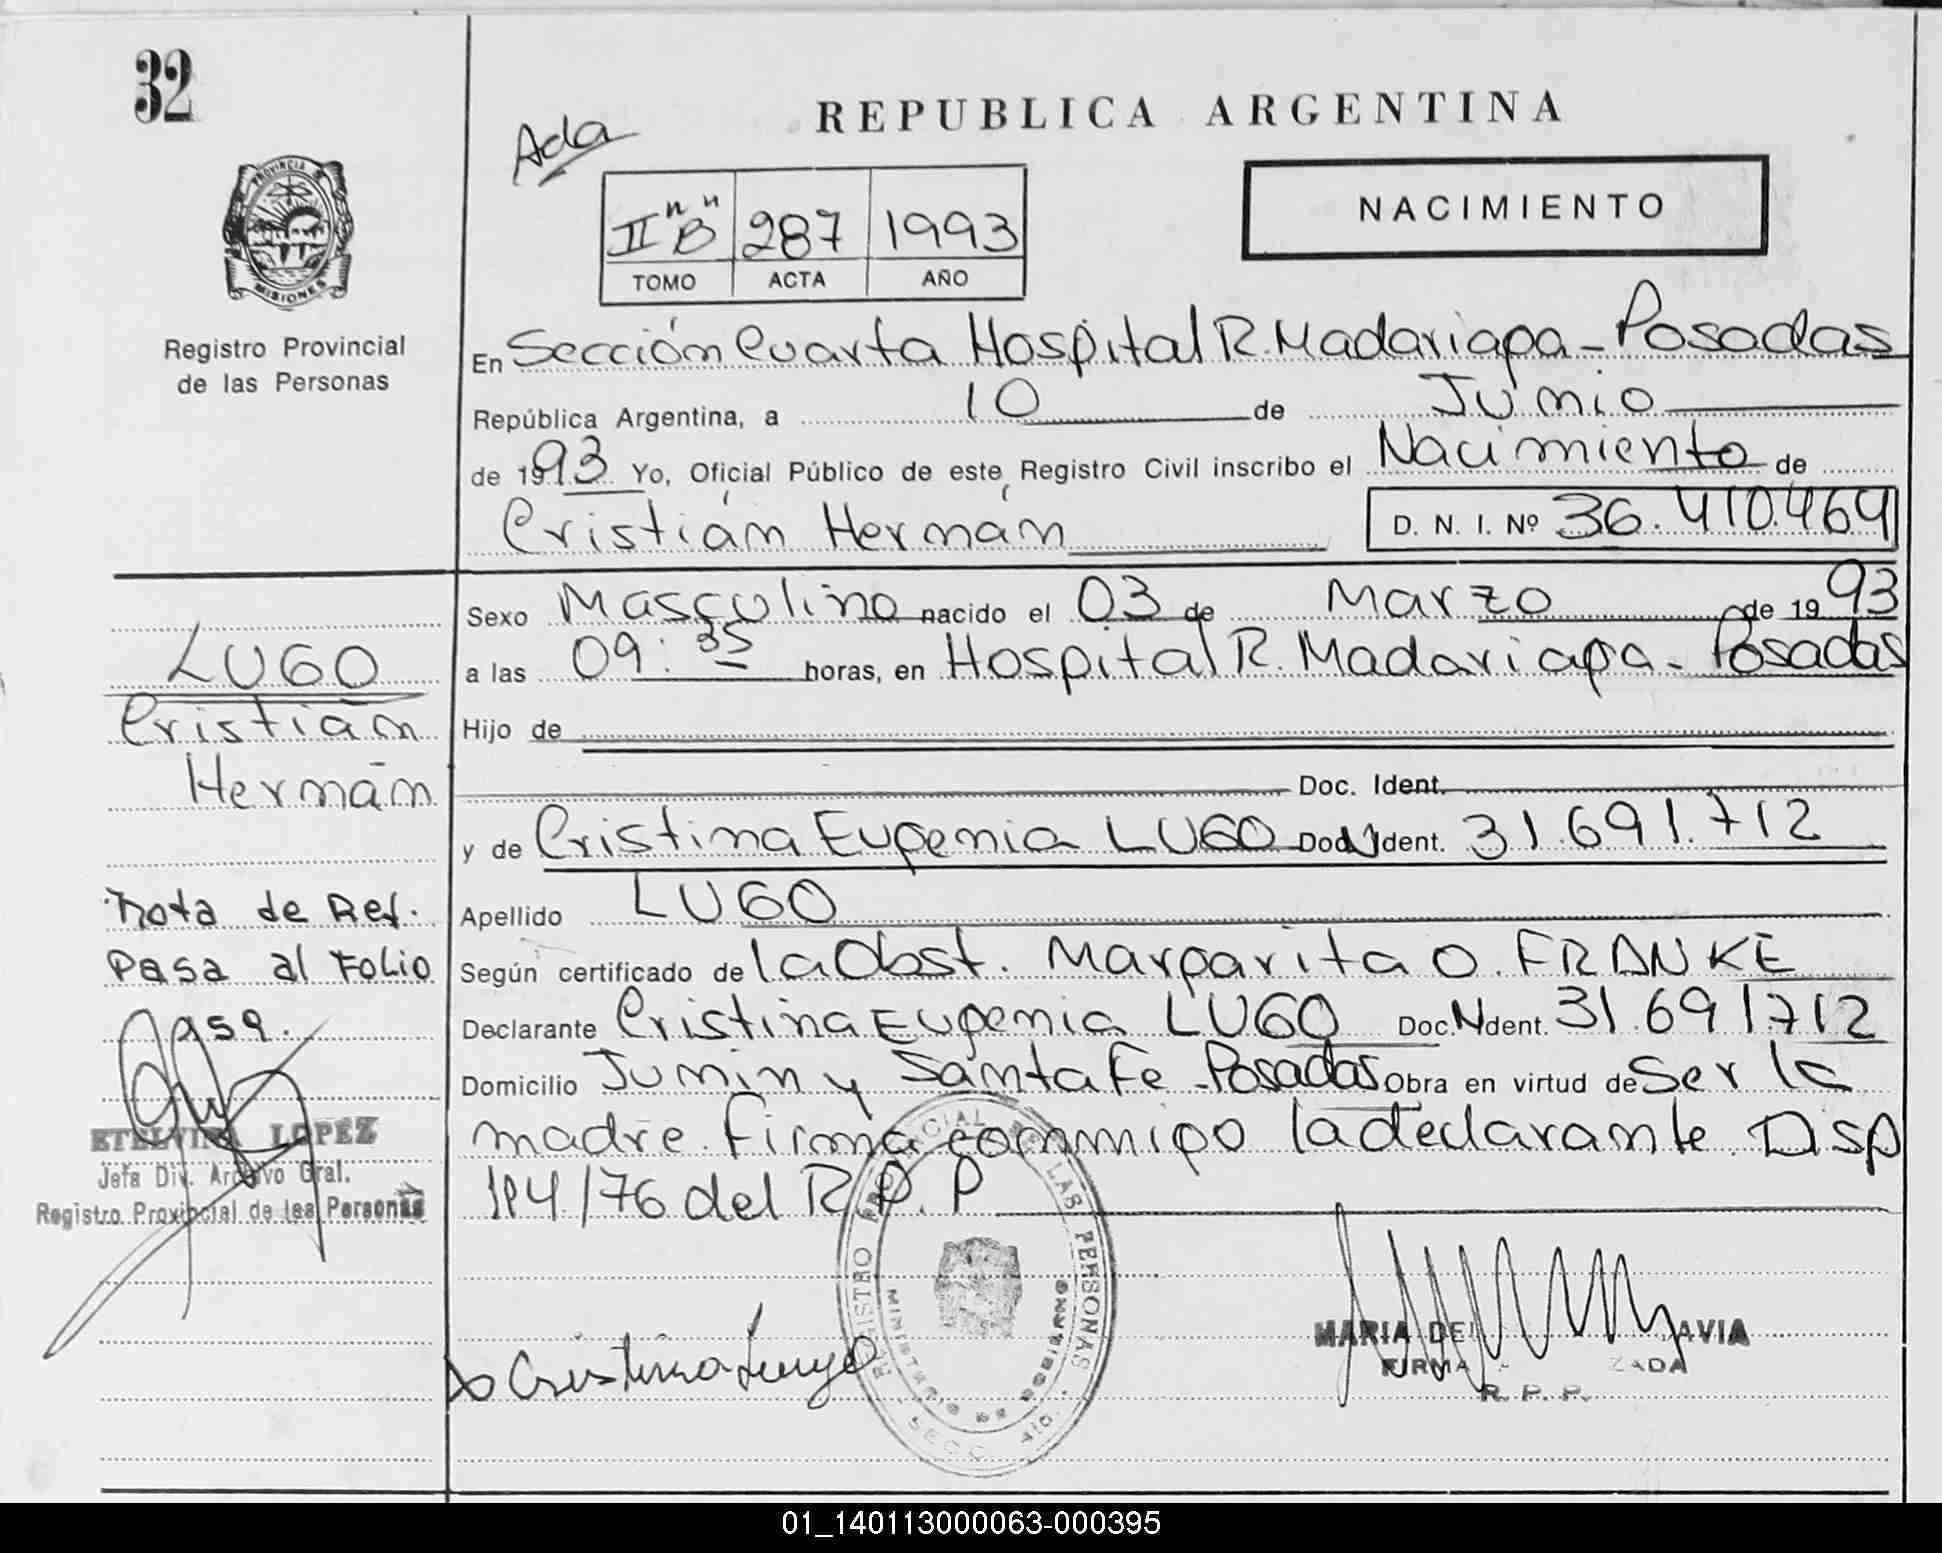 32
REPUBLICA ARGENTINA
Ada
II "B" 287 1993
TOMO ACTA AÑO
NACIMIENTO
PROVINCIA DE
MISIONES
Registro Provincial
de las Personas
En Sección Cuarta Hospital R. Madariaga - Posadas
República Argentina, a 10 de Junio
de 1993 Yo, Oficial Público de este Registro Civil inscribo el Nacimiento de
Cristián Hernán D. N. I. Nº 36.410.464
Sexo Masculino nacido el 03 de Marzo de 1993
a las 09:35 horas, en Hospital R. Madariaga - Posadas
Hijo de
Doc. Ident.
y de Cristina Eugenia LUGO Doc. Ident. 31.691.712
Apellido LUGO
Según certificado de la Obst. Margarita O. FRANKE
Declarante Cristina Eugenia LUGO Doc. Ident. 31.691712
Domicilio Junin y Santa Fe - Posadas Obra en virtud de Ser la
madre. Firma conmigo la declarante Disp
114/76 del R.P.P
LUGO
Cristián
Hernán
Nota de Ref.
Pasa al Folio
ETELVINA LOPEZ
Jefa Div. Archivo Gral.
Registro Provincial de las Personas
REGISTRO PROVINCIAL DE LAS PERSONAS
MINISTERIO DE GOBIERNO
SECC. 4ta.
Cristina Lugo
MARIA DEL AVIA
FIRMA ZADA
R. P. P.
01_140113000063-000395